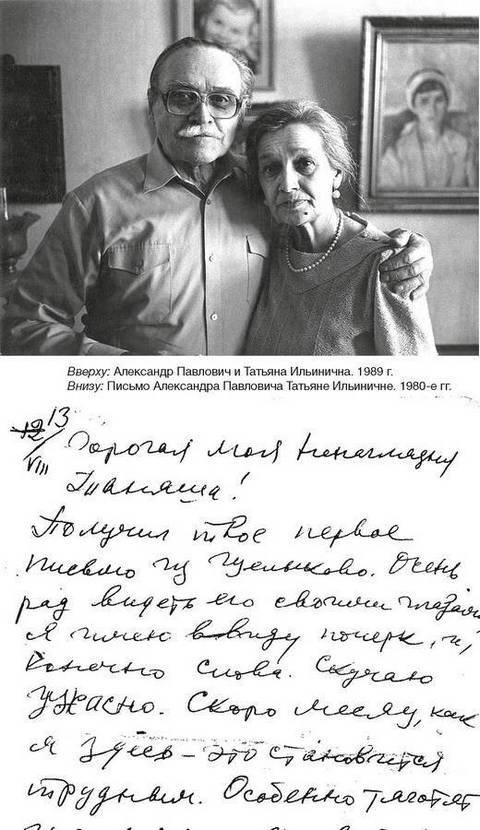 Вверху: Александр Павлович и Татьяна Ильинична. 1989 г.
Внизу: Письмо Александра Павловича Татьяне Ильиничне. 1980-е гг.
12 13
/VIII Дорогая моя Ненаглядная
Таняша!
Получил твое первое
письмо из Гуслиц
рад видеть его своими глазами
Я имею ввиду почерк, и,
конечно слова. Скучаю
ужасно. Скоро месяц, как
я здесь – это становится
трудным. Особенно тяготят